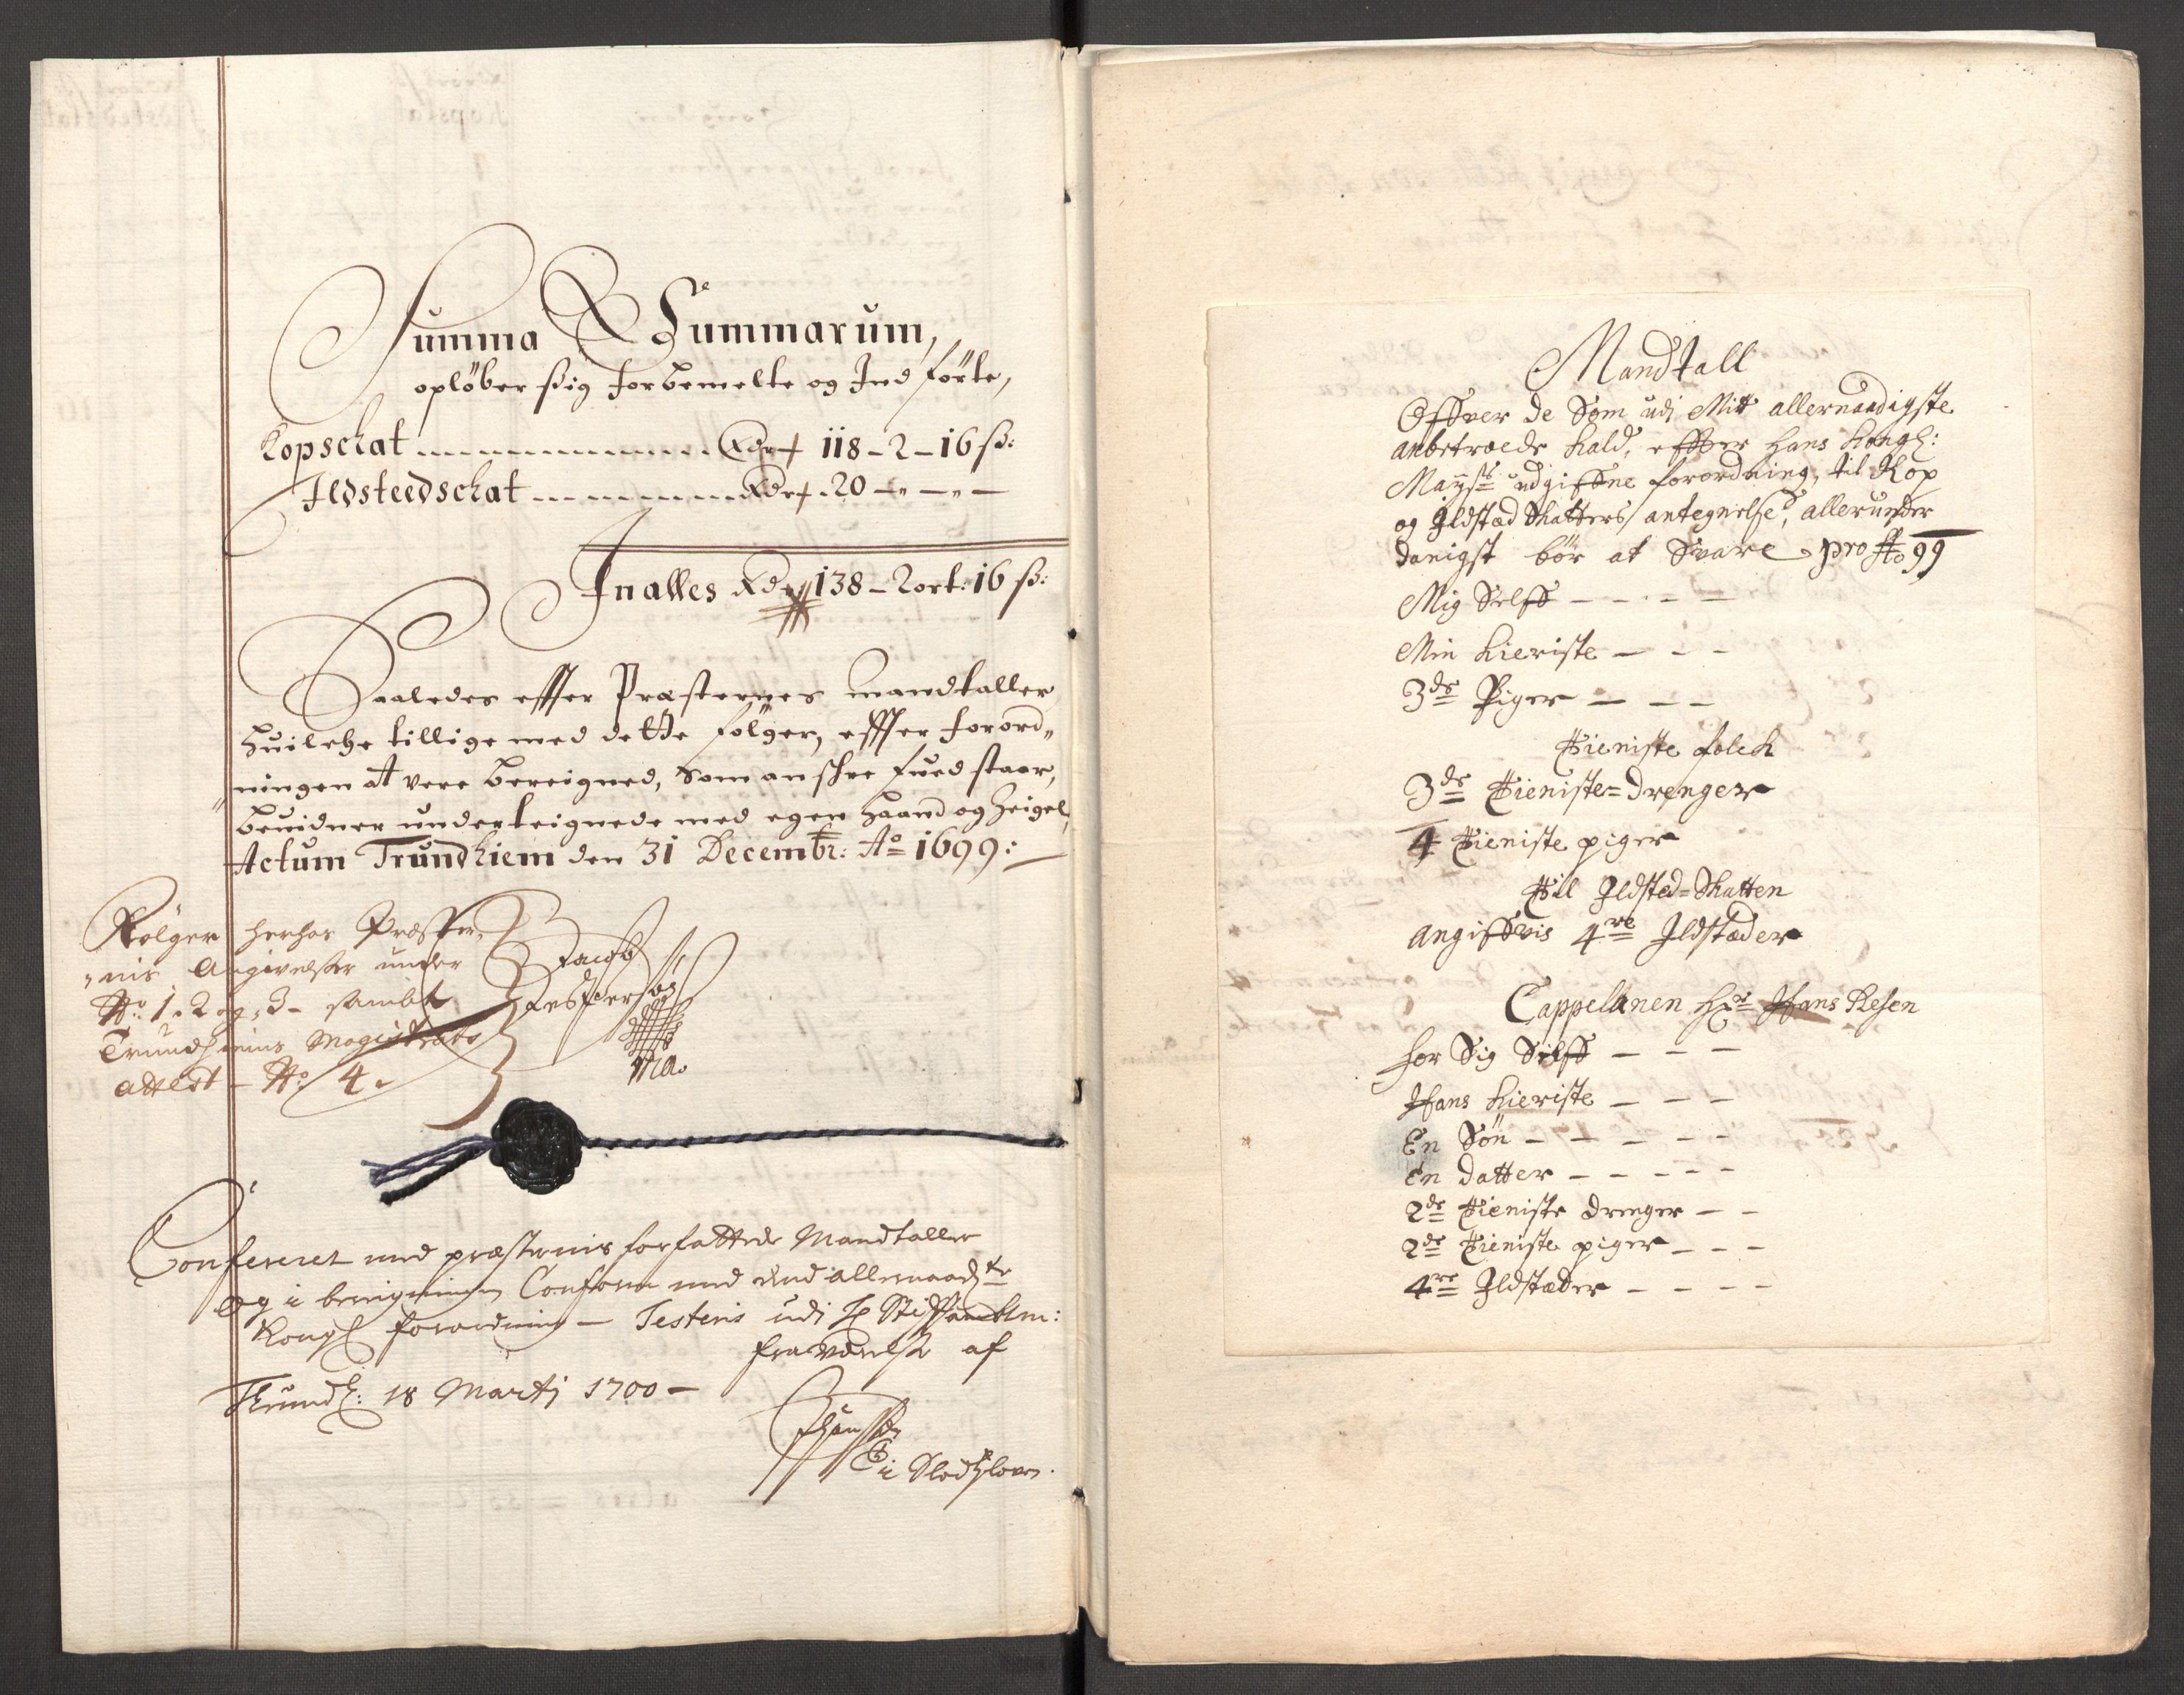 Summa Summarum,
opløber sig forbemelte og Indførte,
Kopschat Rdr 118 - 2 - 16 ß:
Ildsteedschat Rdr 20 - " - " -
In alles Rdr 138 - 2 ort: 16 ß:
Saaledes effter Præsternes mandtaller
huilche tillige med dette følger, effter forord„
„ningen at vere bereigned, som anføre fued staar,
beuidner underteignede med egen haand og Zeigel,
Actum Trundhiem den 31 Decembr: Ao 1699:
Følger herhos Præster„
„nis Angivelser under
No 1. 2 og 3 - sambt
Trundhiems Magistrats
attest - No 4.
Jacob
Jespersøn
mа.
Confereret med præsternis forfattede Mandtaller
Og i beregningen Conform med dend allernaadste
Kongl forordning - Testeris udi H Stifftambtm:
fraværelse af
Trundh: 18 Martj 1700 -
Mandtall
Offver de Som udi Mitt allernaadigste
anbetroede kald, effter Hans Kongl:
Mayts udgiffne forordning, til Kop
og Ildstæd Skatters antegnelse, allerunder
danigst bør at Svare pro Ao 99
Mig Selff - - - -
Min Kieriste - - -
3de Piger - - -
Tieniste folck
3de Tieniste=Drenger
4 Tieniste piger
Til Ildsted=Skatten
angiffvis 4re Ildstæder
Cappelanen Hr Hans Resen
for Sig Selff - - -
Hans Kieriste - - -
En Søn - - - - -
En datter - - - - -
2de Tieniste drenger - -
2de Tieniste piger - - -
4re Ildstæder - - - -